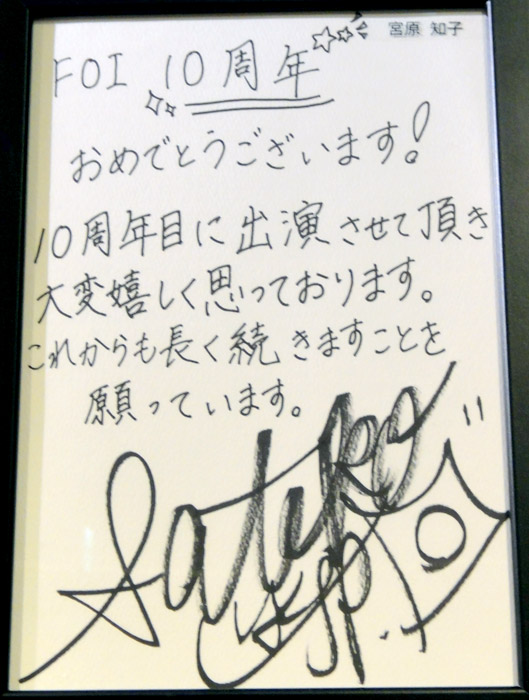 宮原 知子
FOI 10周年
おめでとうございます!
10周年目に出演させて頂き
大変嬉しく思っております。
これからも長く続きますことを
願っています。
Satoko